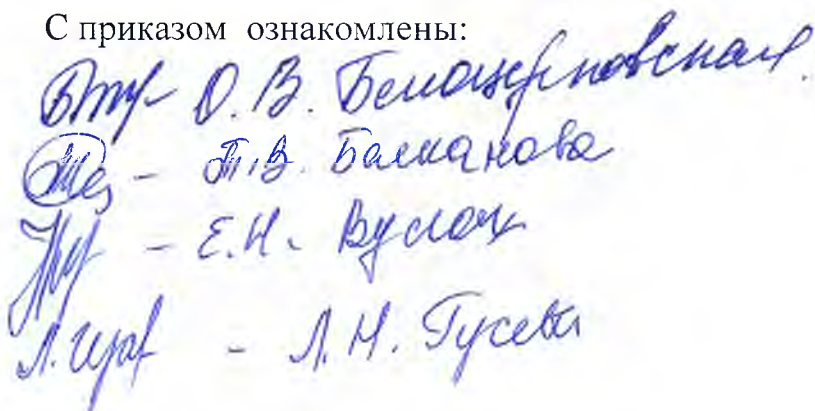 С приказом ознакомлены:
О.В. Белоцерковская
Т.В. Балканова
Е.Н.
Л.Н. Гусева